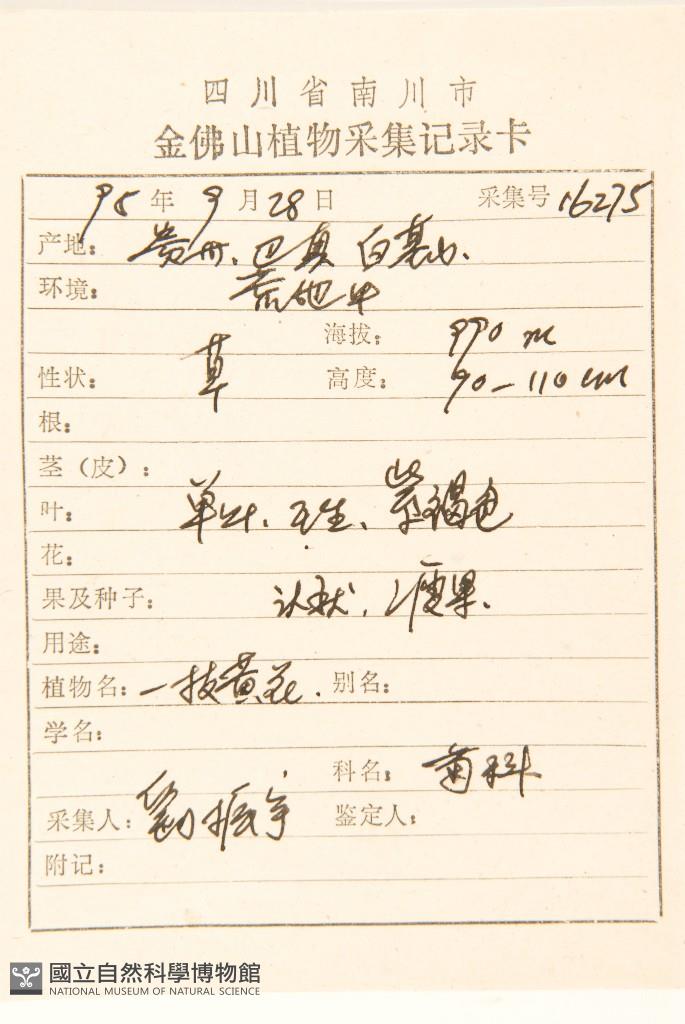 四川省南川市
金佛山植物采集记录卡
95年9月28日 采集号 16275
产地: 贵州、白
环境: 荒地中
海拔: 990 m
性状: 草 高度: 90-110 cm
根:
茎(皮):
叶: 单叶、互生、紫褐色
花:
果及种子: 瘦果、
用途:
植物名: 一枝黄花. 别名:
学名:
科名: 菊科
采集人: 鉴定人:
附记:
國立自然科學博物館
NATIONAL MUSEUM OF NATURAL SCIENCE